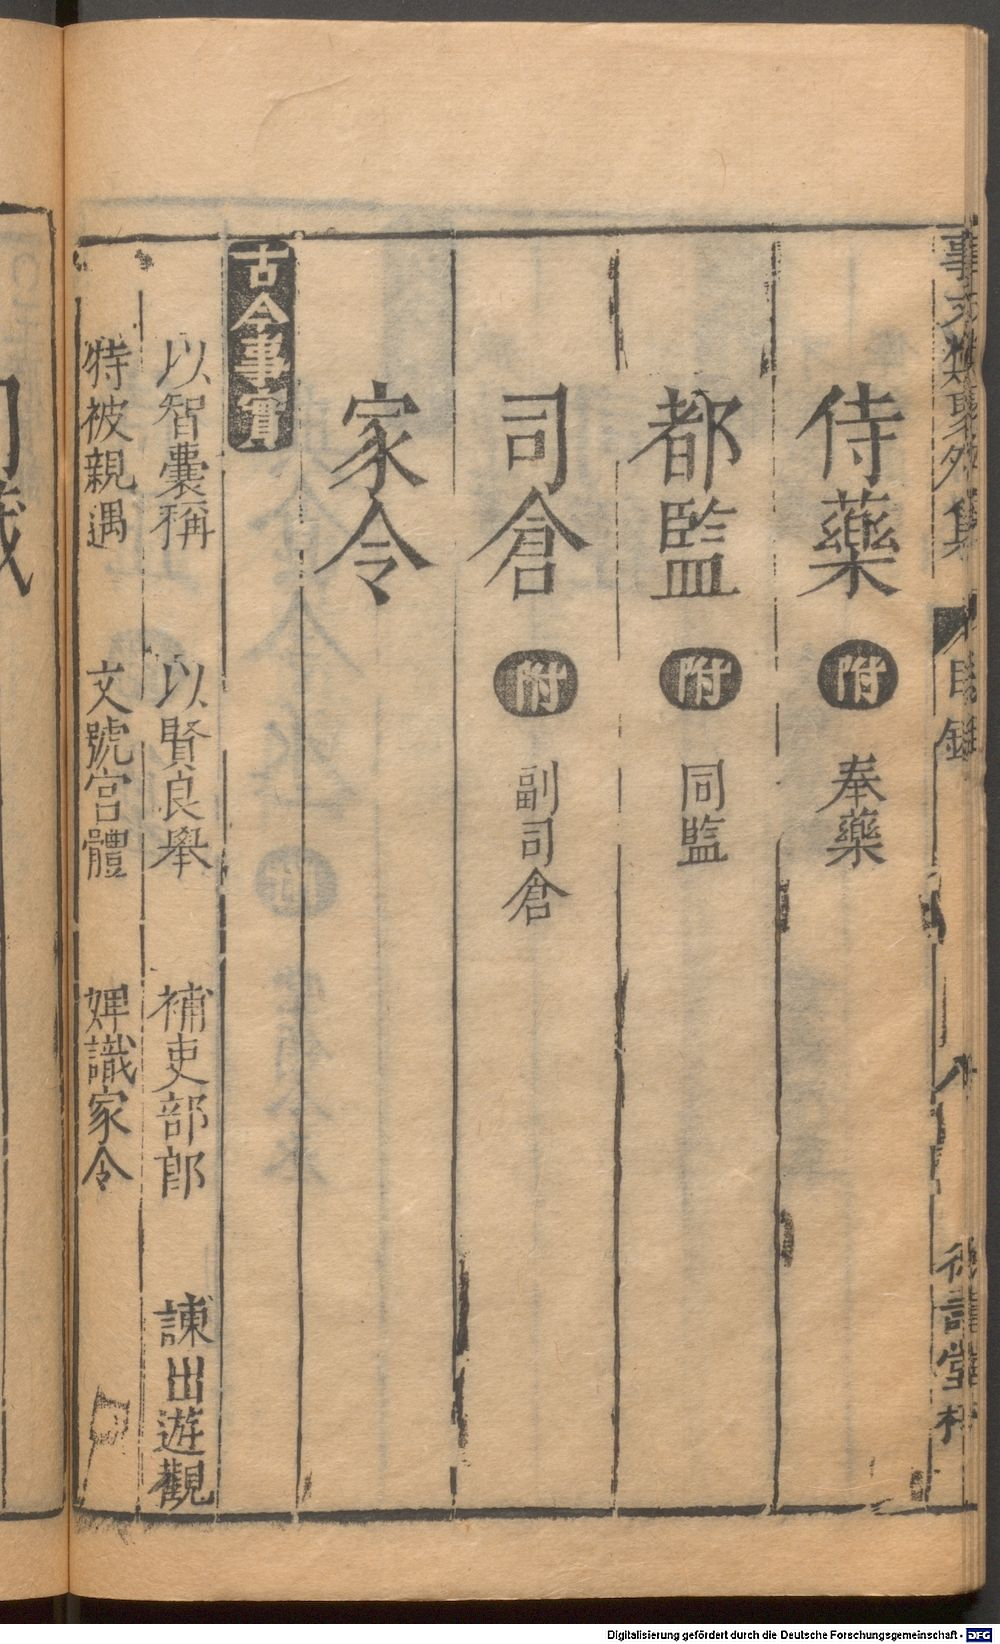 事文類聚外集 目錄 八 德壽堂梓
侍藥 附 奉藥
都監 附 同監
司倉 附 副司倉
家令
古今事實
以智囊稱 以賢良舉 補吏部郎 諫出遊觀
特被親遇 文號宮體 婢識家令
Digitalisierung gefördert durch die Deutsche Forschungsgemeinschaft - DFG